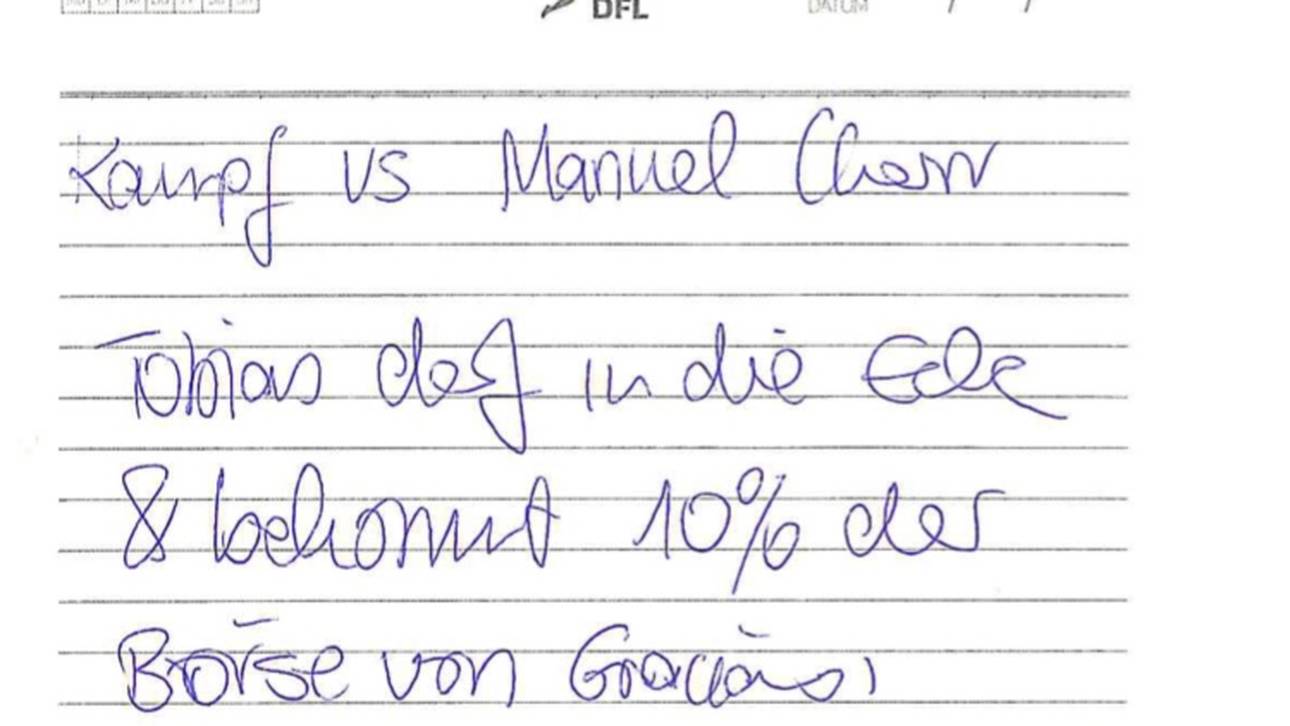 DFL DATUM / /
Kampf vs Manuel Charr
Tobias darf in die Ecke
& bekommt 10% der
Börse von Graciano,